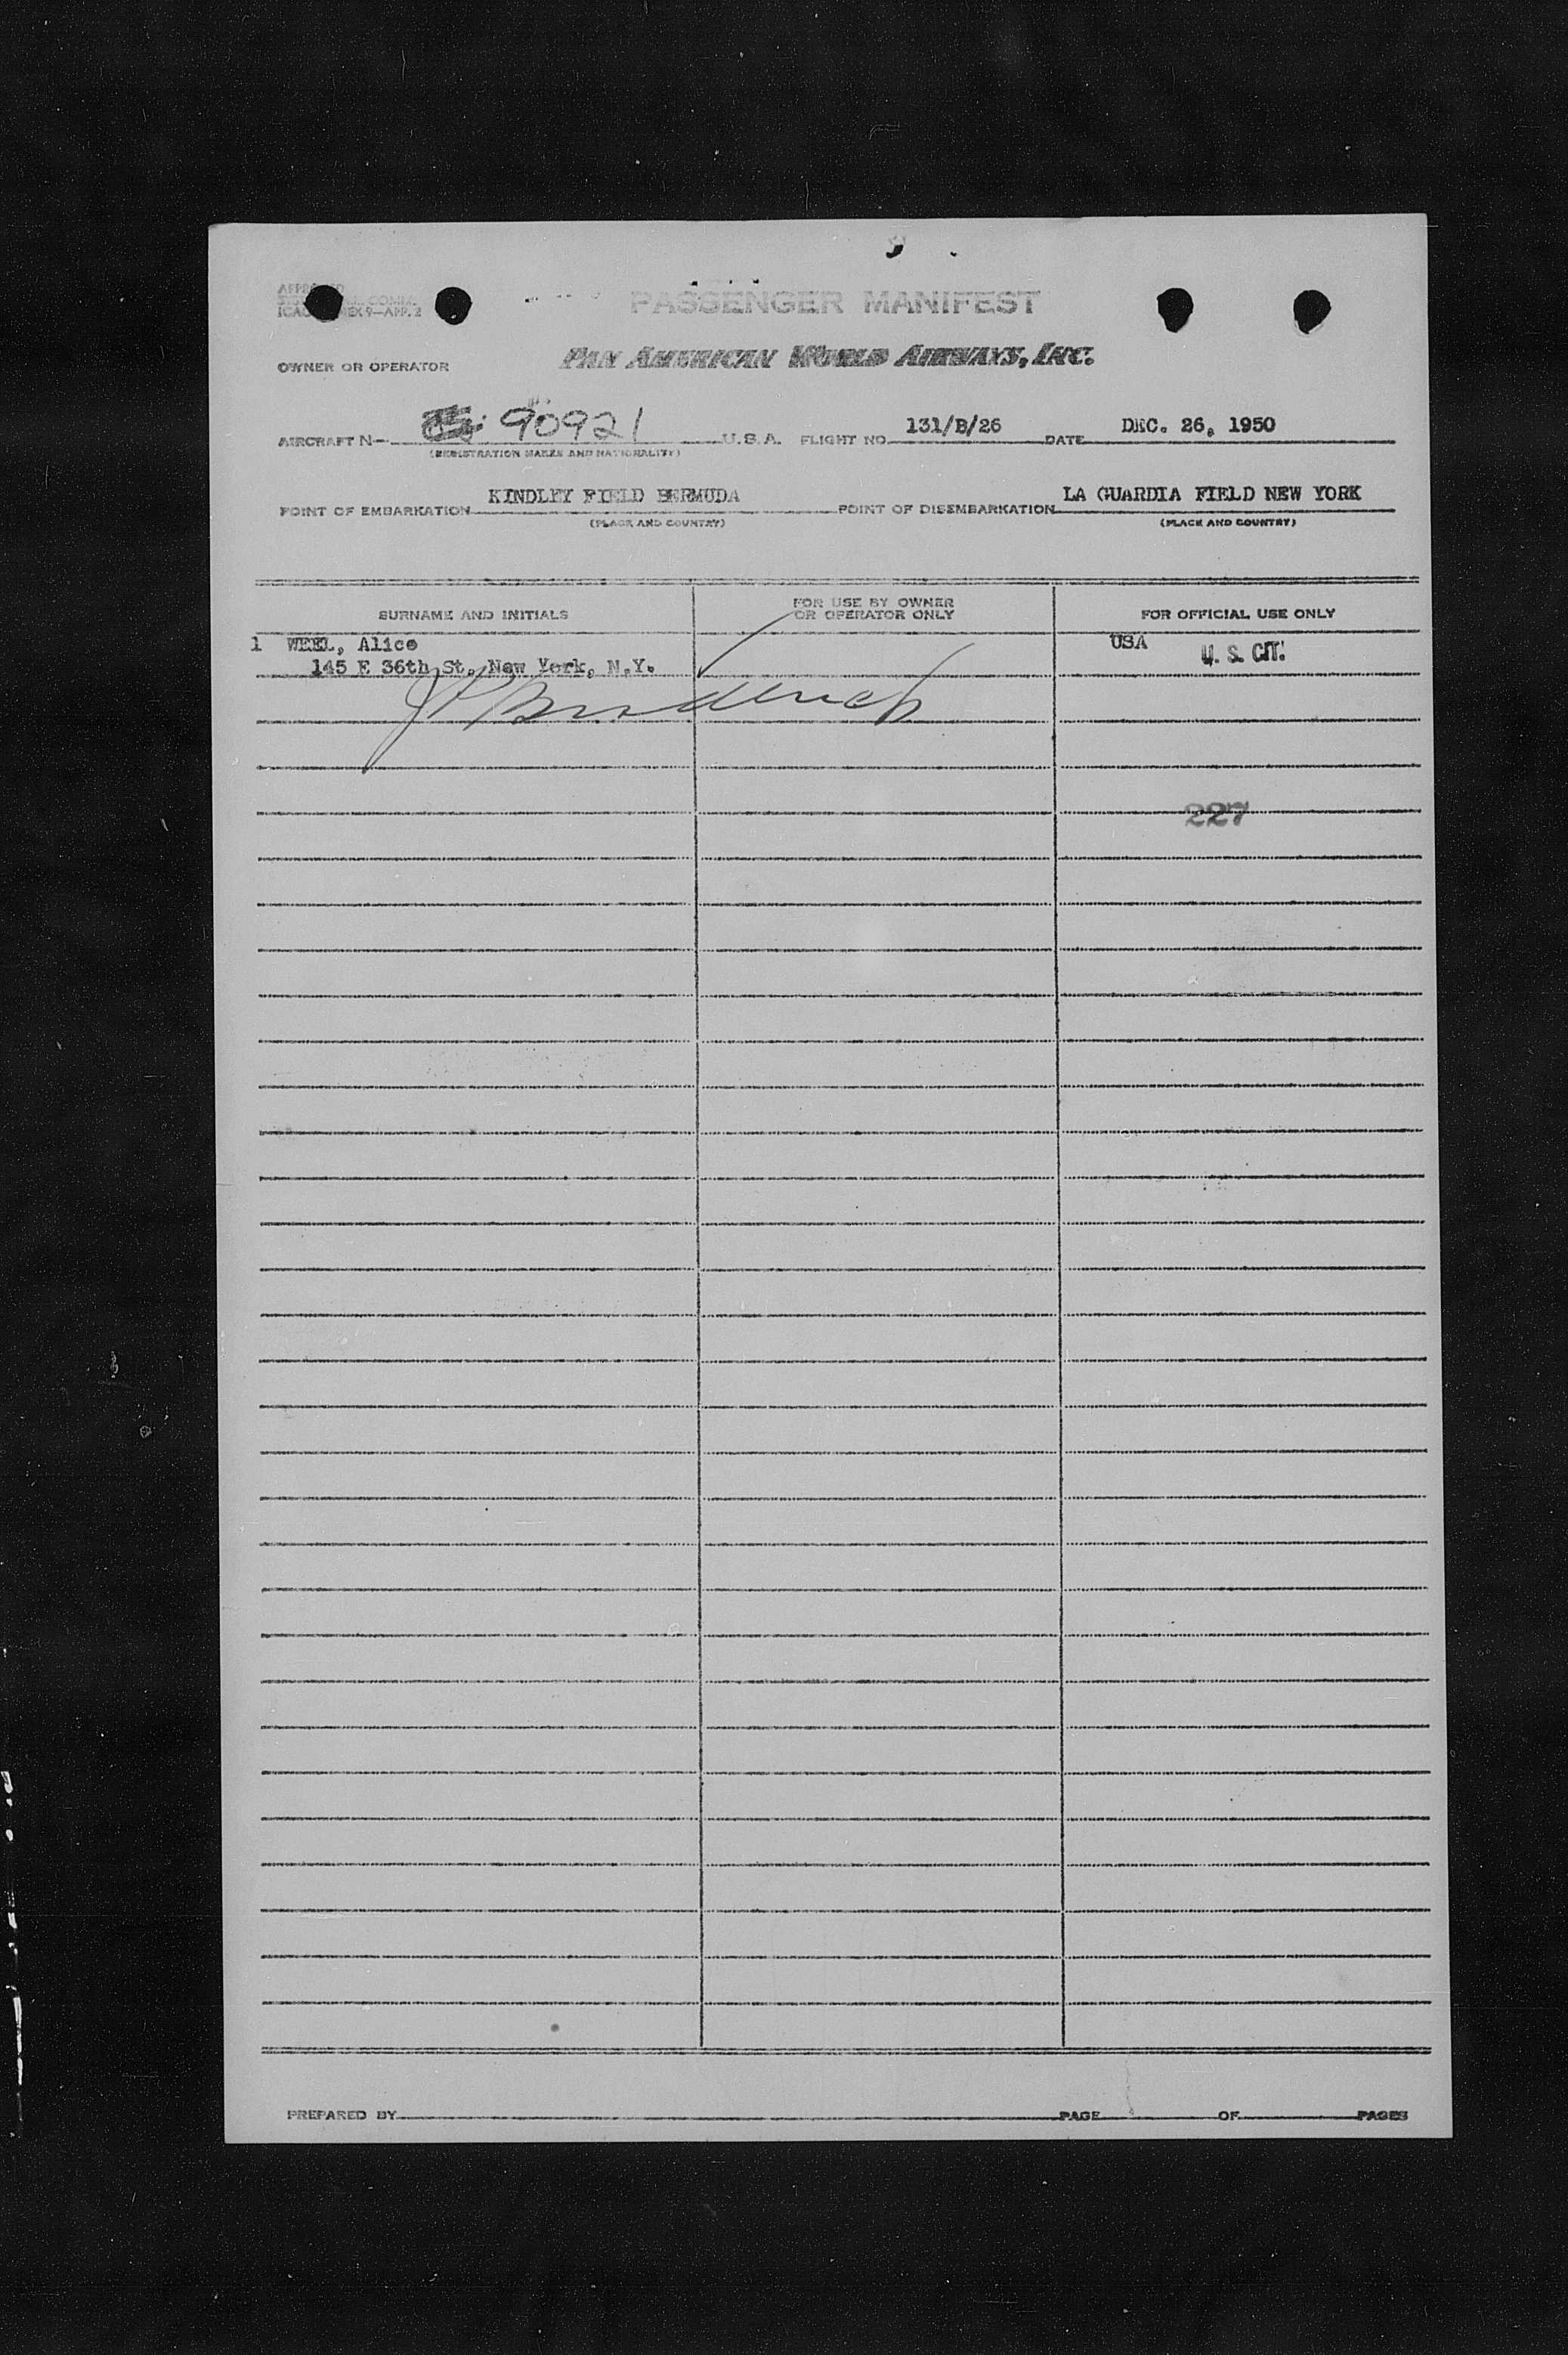 PASSENGER MANIFEST
ICAO ANNEX 9—APP. 2
OWNER OR OPERATOR PAN AMERICAN WORLD AIRWAYS, INC.
AIRCRAFT N— 90921 U.S.A. FLIGHT NO. 131/B/26 DATE DEC. 26, 1950
(REGISTRATION MARKS AND NATIONALITY)
POINT OF EMBARKATION KINDLEY FIELD BERMUDA POINT OF DISEMBARKATION LA GUARDIA FIELD NEW YORK
(PLACE AND COUNTRY) (PLACE AND COUNTRY)
SURNAME AND INITIALS FOR USE BY OWNER OR OPERATOR ONLY FOR OFFICIAL USE ONLY
1 WEEL, Alice USA U. S. CIT.
145 E 36th St. New York, N.Y.
227
PREPARED BY PAGE OF PAGES